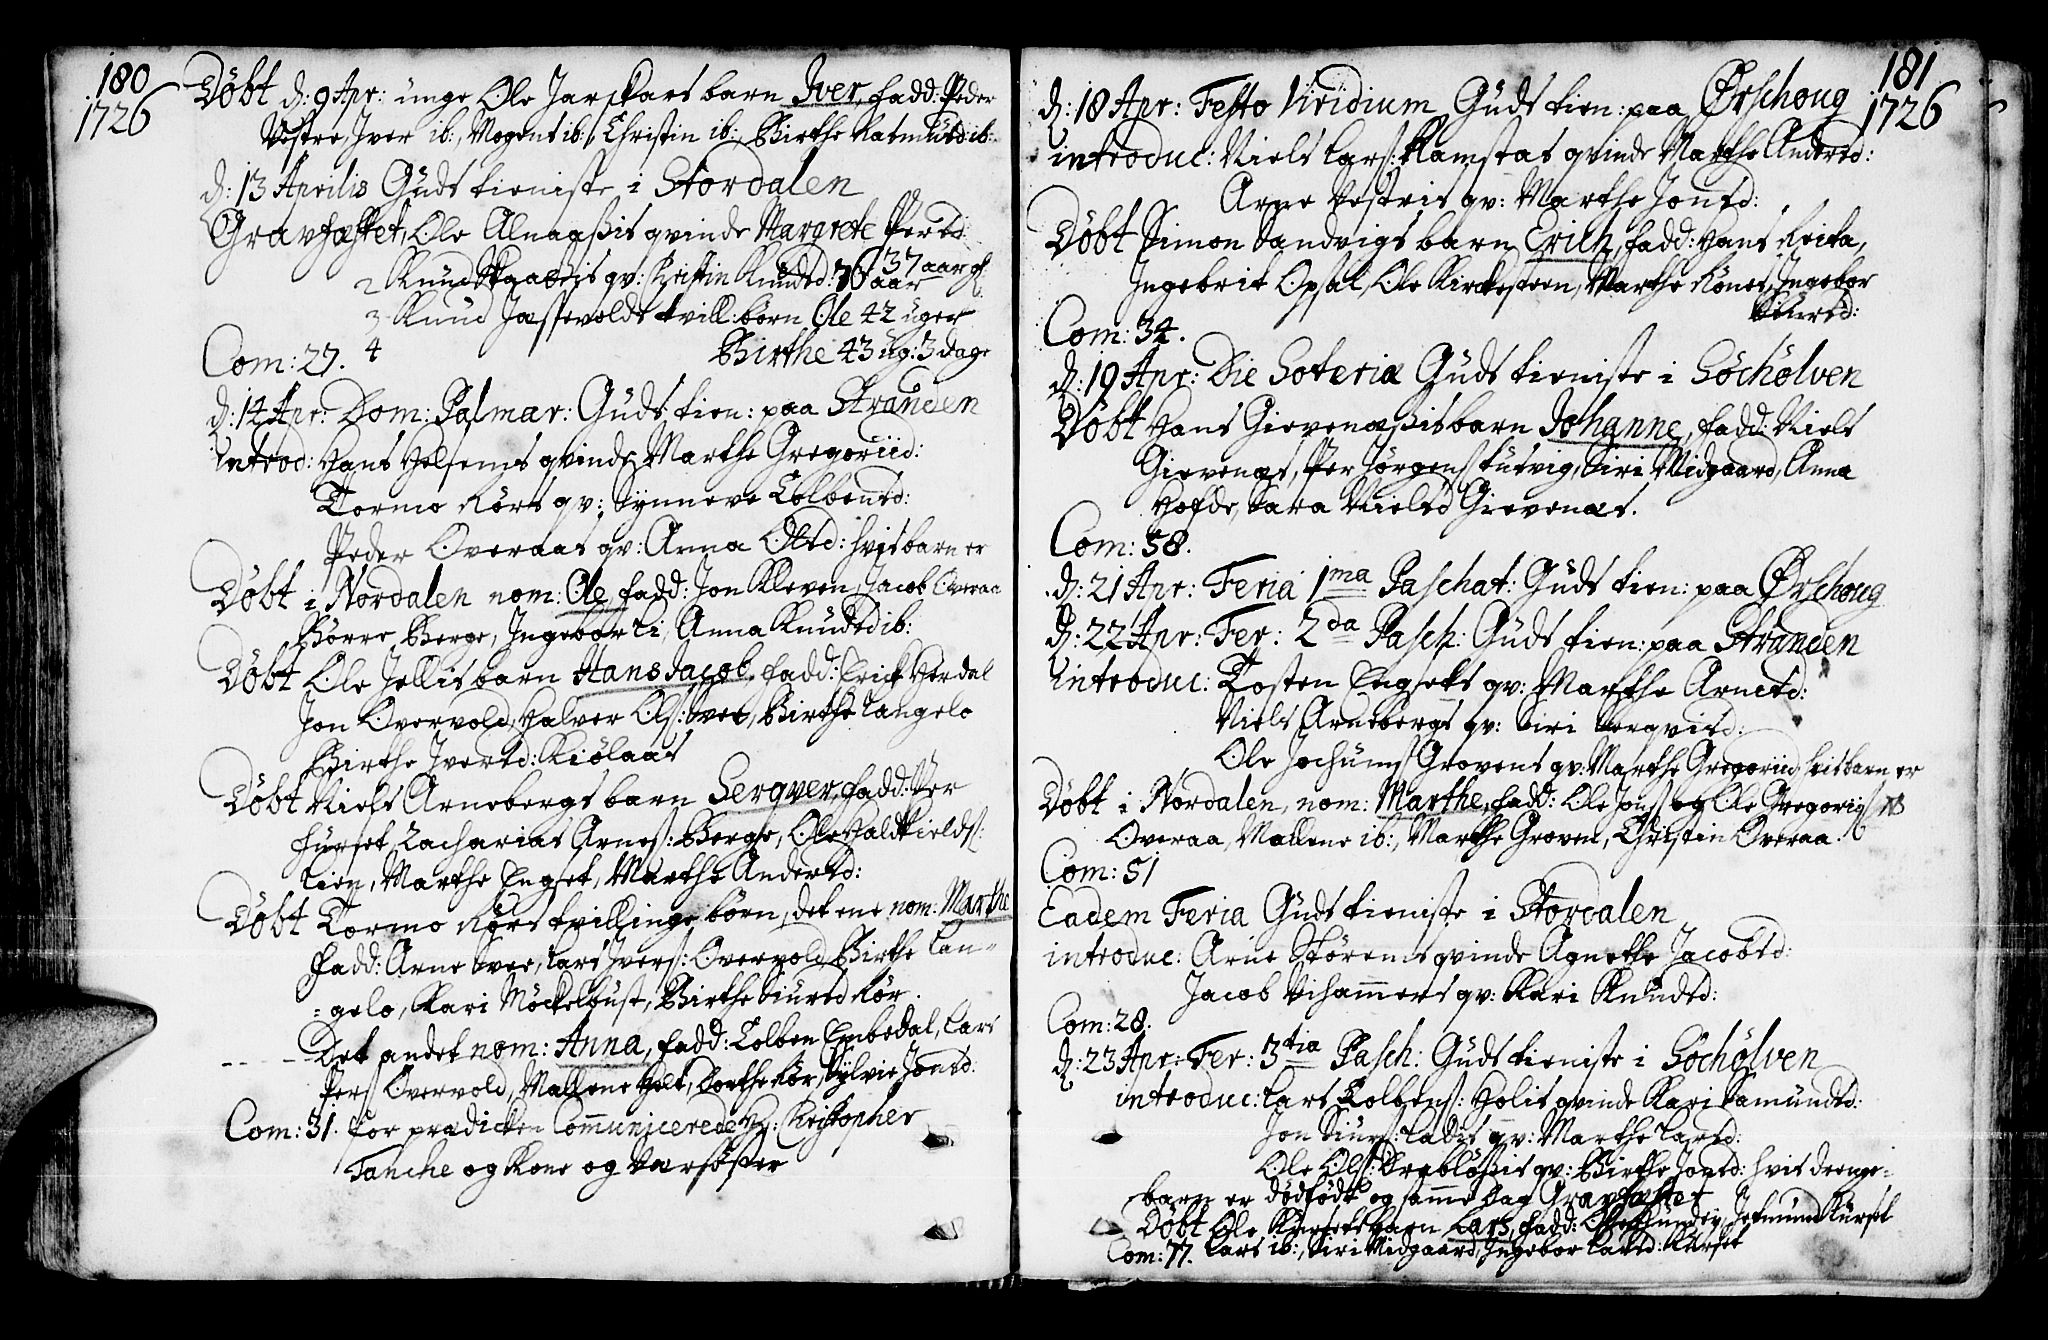 180
1726
Døbt d: 9 Apr: unge Ole Jarskars barn Iver, fadd: Peder
Vestre, Iver ib:, Mogens ib:, Christin ib:, Birthe Rasmusd ib:
d: 13 Aprilis Guds tieniste i Stordalen
Gravfæstet, Ole Alnaaßis qvinde Margrete Persd
37 aar gl.
2 Knud Skaaßis qv: Christin Knudsd: 76 aar
3 Knud Jossevolds tvill: børn Ole 42 uger
Com: 27. 4 Birthe 43 ug: 3 dage
d: 14 Apr: Dom: Palmar: Guds tien: paa Stranden
introd: Hans Helsems qvinde Marthe Gregoriid:
Tormo Rørs qv: Synneve Colbensd:
Peder Overaas qv: Anna Olsd: hvis barn er
Døbt i Nordalen nom: Ole, fadd: Jon Kleven, Jacob Overaa
Børre Berge, Ingebor Li, Anna Knudsd ib:
Døbt Ole Jellis barn Hans Jacob, fadd: Erick Herdal
Jon Overvold, Halver Ols: Øvre, Birthe Langelo
Birthe Iversd: Kiølaas
Døbt Niels Arnebergs barn Serqver, fadd: Per
Furset, Zacharias Arnes: Berge, Ole Haldkields:
Lien, Marthe Engset, Marthe Andersd:
Døbt Tormo Rørs tvillinge børn, det ene nom: Marthe
fadd: Arne Øvre, Lars Ivers: Overvold, Birthe Lan=
=gelo, Kari Møckelbust, Birthe Siursd Rør.
- - - Det andet nom: Anna, fadd: Colben Embedal, Lars
Pers Overvold, Mallene Holt, Dorthe Rør, Sylvie Jonsd:
Com: 31. for prædicken Communicerede Hr: Christopher
Tanche og Kone og Værsøster
181
1726
d: 18 Apr: Festo Viridium Guds tien: paa Ørschoug
introduc: Niels Lars: Ramstas qvinde Marthe Andersd:
Arne Vestris qv: Marthe Jonsd:
Døbt Simon Sandvigs barn Erich, fadd: Hans Reita,
Ingebrit Opsal, Ole Kirckesteen, Marthe Rønes, Ingebor
Siursd:
Com: 34.
d: 19 Apr: Die Soteriæ Guds tieniste i Søchølven
Døbt Hans Gievenæßis barn Johanne, fadd: Niels
Gievenæs, Per Jørgens Kutvig, Siri Midgaard, Anna
Hofde, Sara Nielsd Gievenæs.
Com: 58.
d: 21 Apr: Feria 1ma Paschat: Guds tien: paa Ørschoug
d: 22 Apr: Fer: 2da Pasch: Guds tien: paa Stranden
introduc: Tosten Engsets qv: Marthe Arnesd:
Niels Arnebergs qv: Siri Serqvisd:
Ole Jochums Grovens qv: Marthe Gregoriid hvis barn er
Døbt i Nordalen, nom: Marthe, fadd: Ole Jons og Ole Gregoriis
Overaa, Mallene ib:, Marthe Groven, Christin Overaa.
Com: 51
Eadem Feria Guds tieniste i Stordalen
introduc: Arne Størems qvinde Agnethe Jacobsd:
Jacob Vihammers qv: Kari Knudsd:
Com: 28.
d: 23 Apr: Fer: 3tia Pasch: Guds tieniste i Søchølven
introduc: Lars Colbens: Holis qvinde Kari Samundsd:
Jon Siurs: Ladis qv: Marthe Larsd:
Ole Ols: Drabløßis qv: Birthe Jonsd: hvis drenge=
barn er dødfødt og samme dag Gravfæstet
Døbt Ole Kursets barn Lars, fadd: Jetmund Kurset
Com: 77. Lars ib:, Siri Midgaard, Ingebor Larsd: Kurset